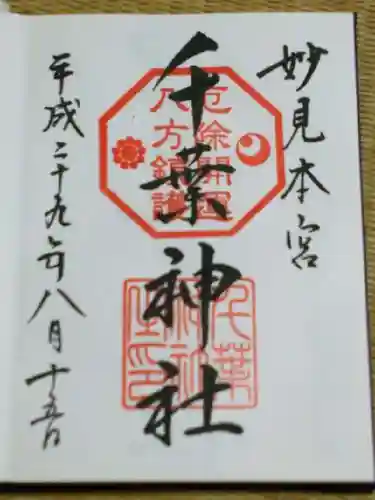 妙見本宮
千葉神社
厄除開運
八方鎮護
千葉神社之印
平成二十九年八月十五日